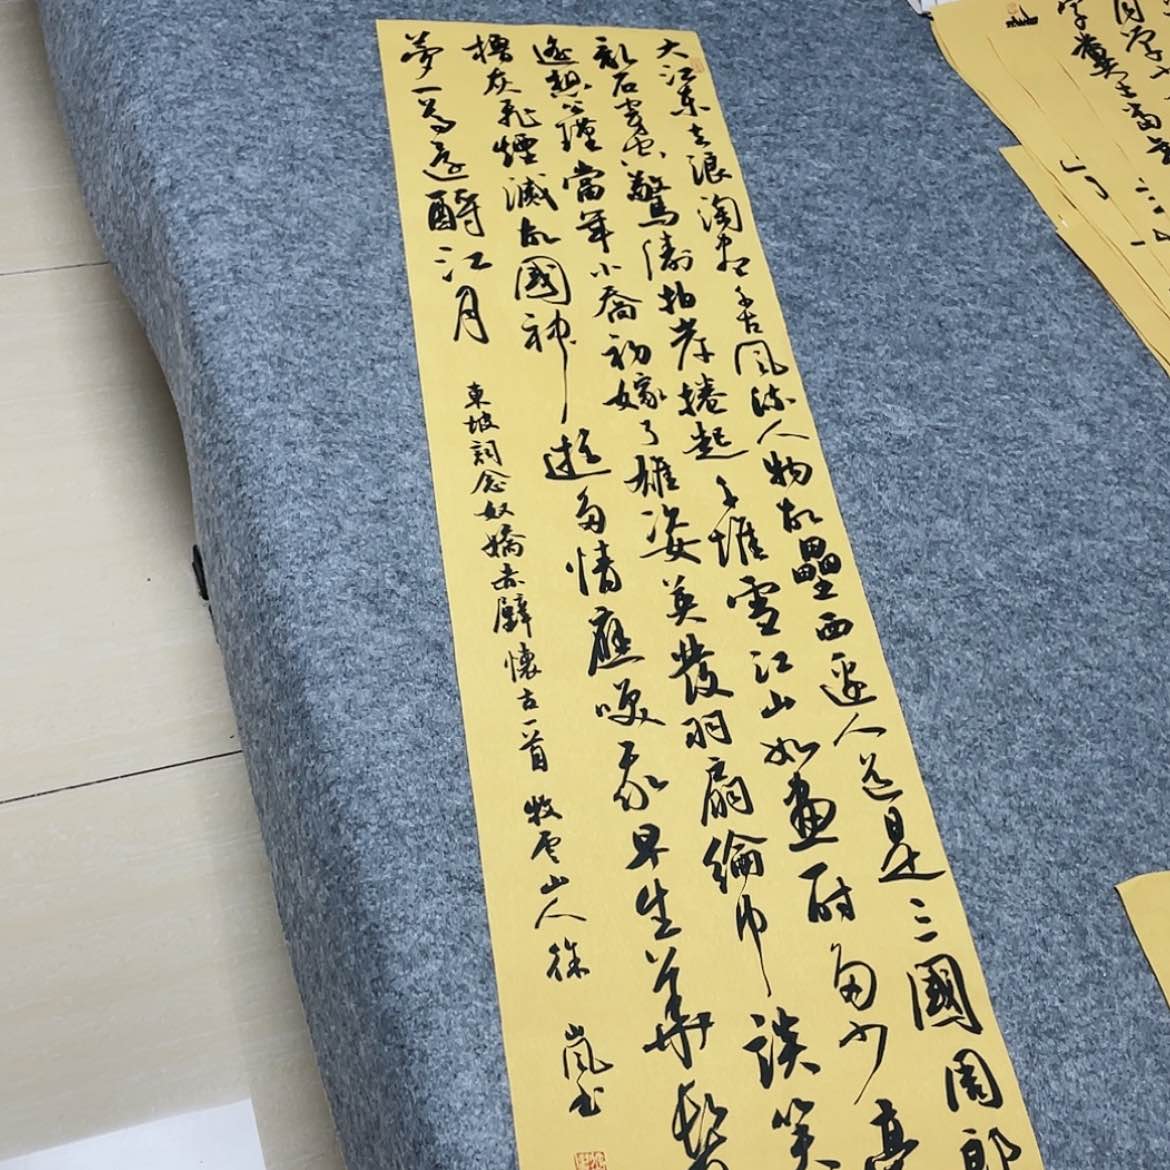 大江東去浪淘盡千古風流人物故壘西邊人道是三國周郎
亂石穿空驚濤拍岸捲起千堆雪江山如畫一時多少豪
遙想公瑾當年小喬初嫁了雄姿英發羽扇綸巾談笑
櫓灰飛煙滅故國神遊多情應笑我早生華髮
夢一尊還酹江月
東坡詞念奴嬌赤壁懷古一首 牧雲山人徐嵐書